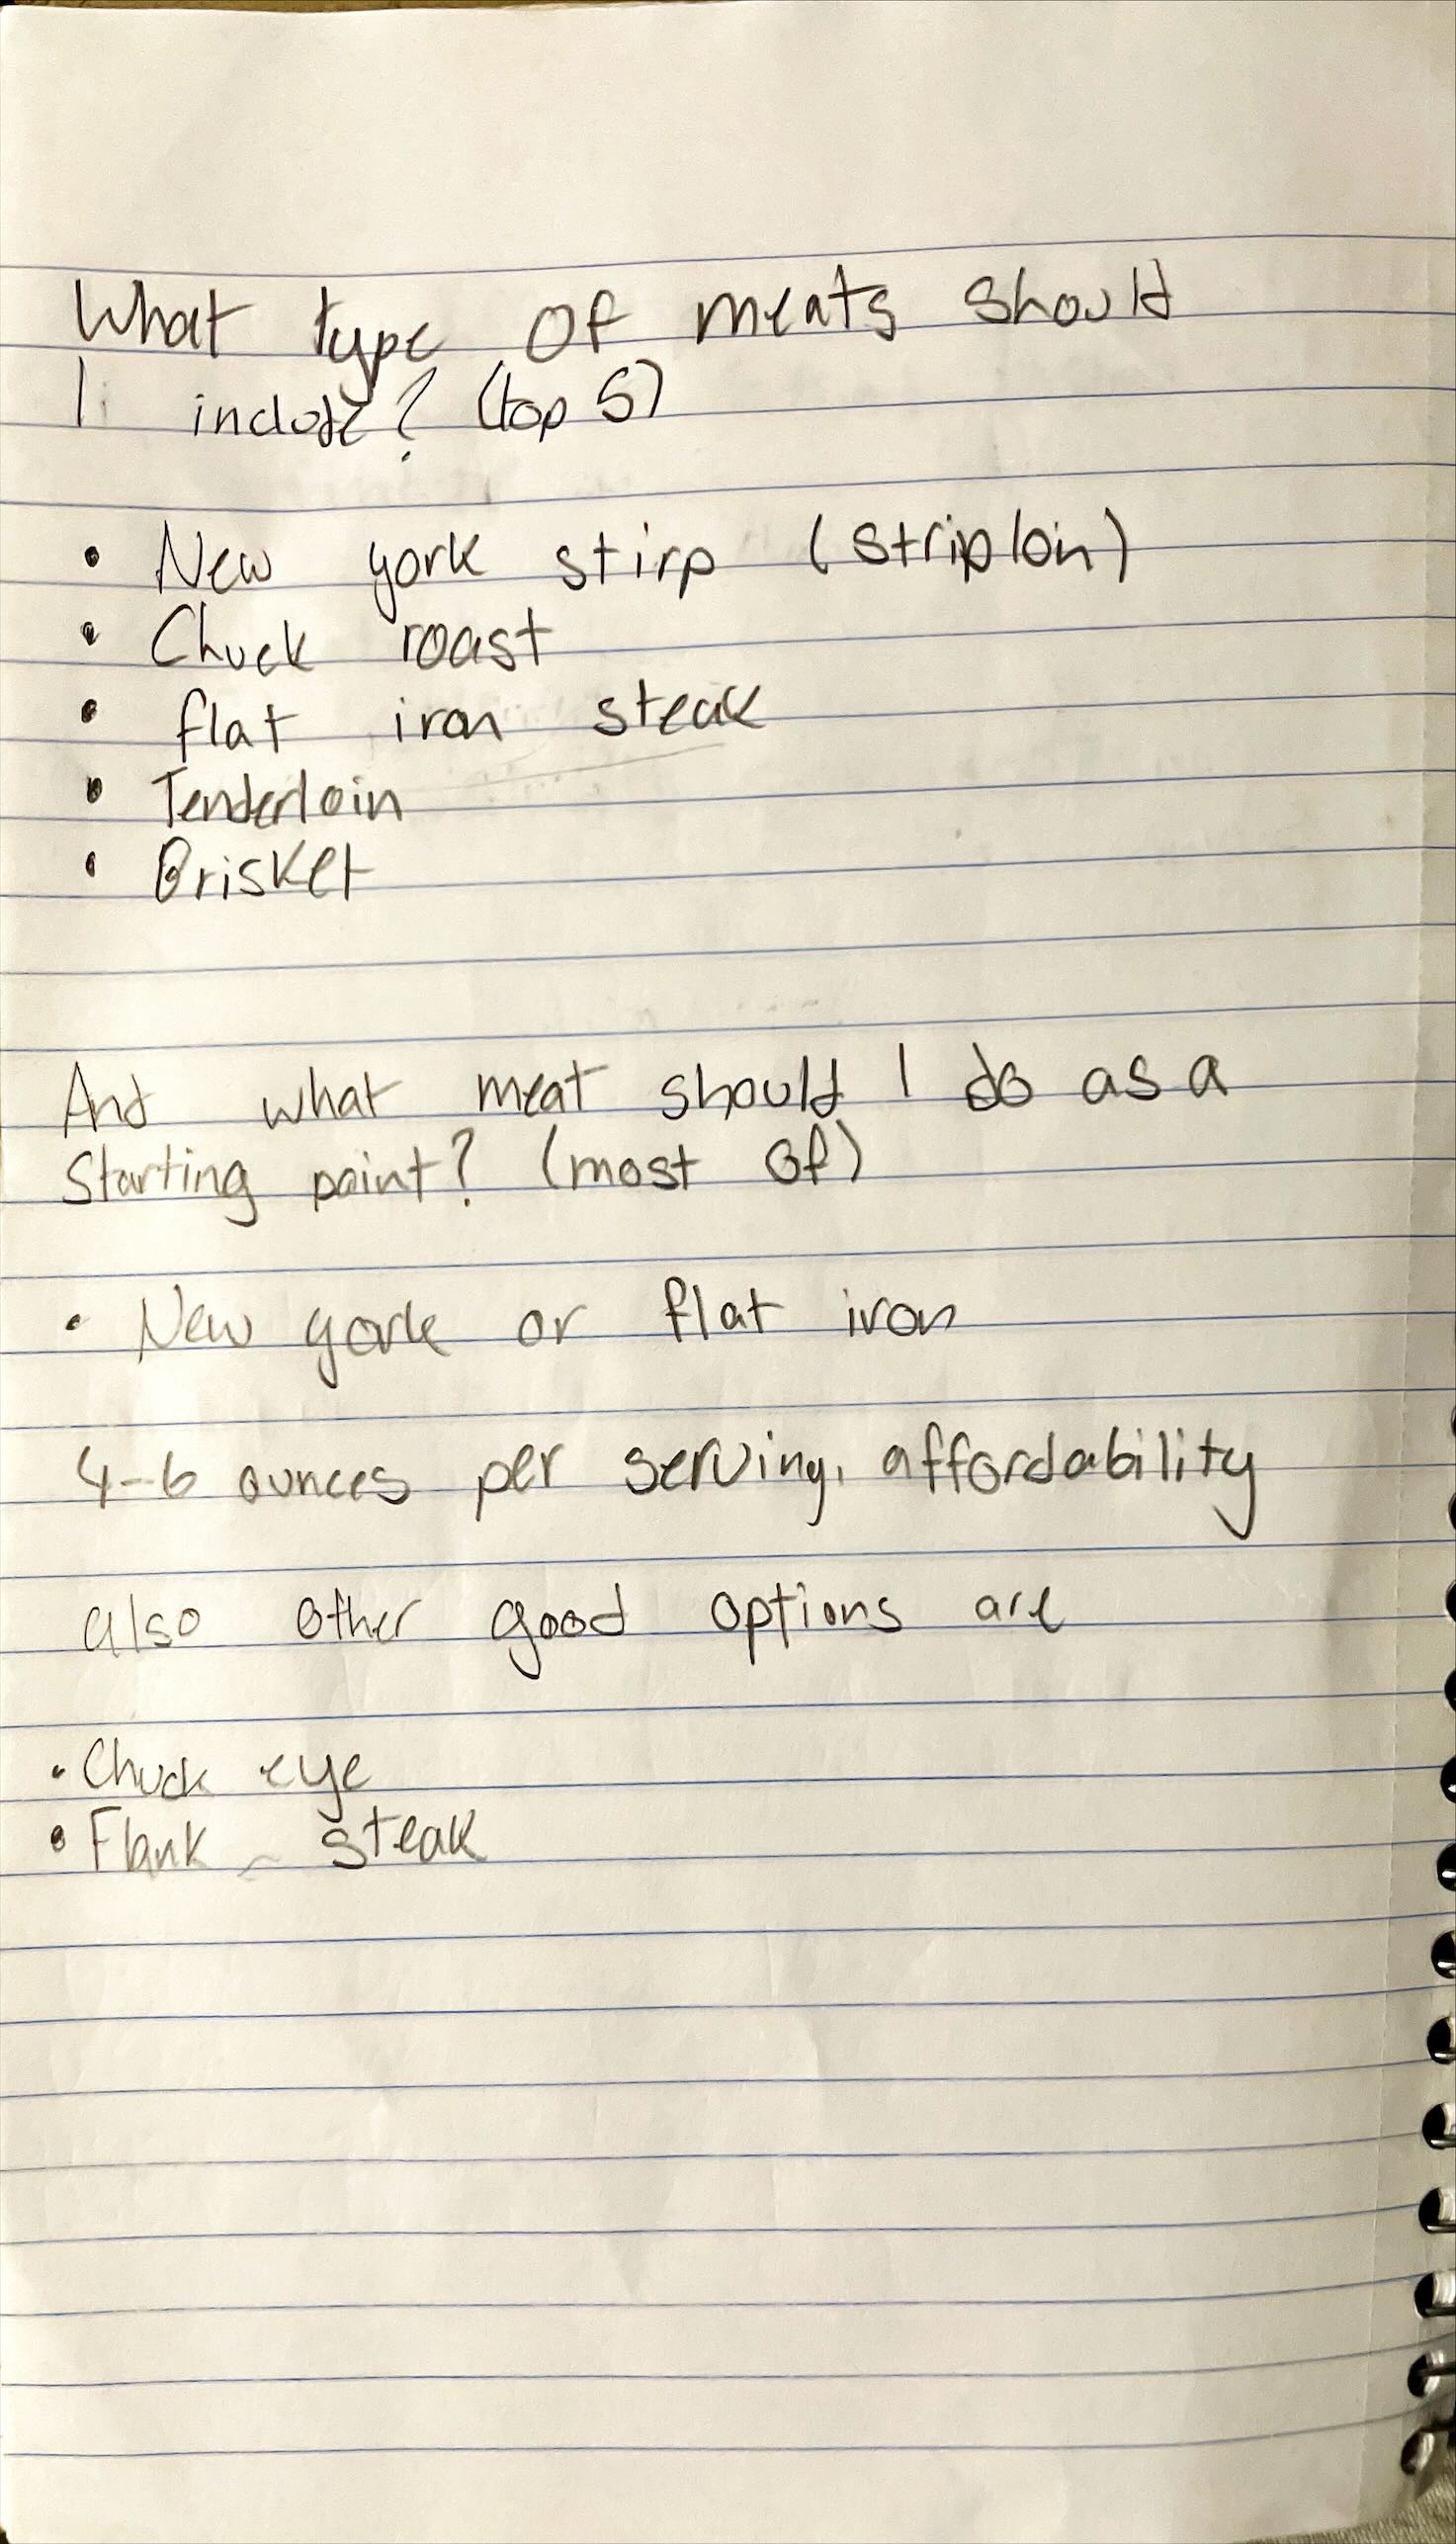 What type of meats should
I include? (top 5)
• New york stirp (striploin)
• Chuck roast
• flat iron steak
• Tenderloin
• Brisket
And what meat should I do as a
starting point? (most of)
• New york or flat iron
4-6 ounces per serving, affordability
also other good options are
• Chuck eye
• Flank steak